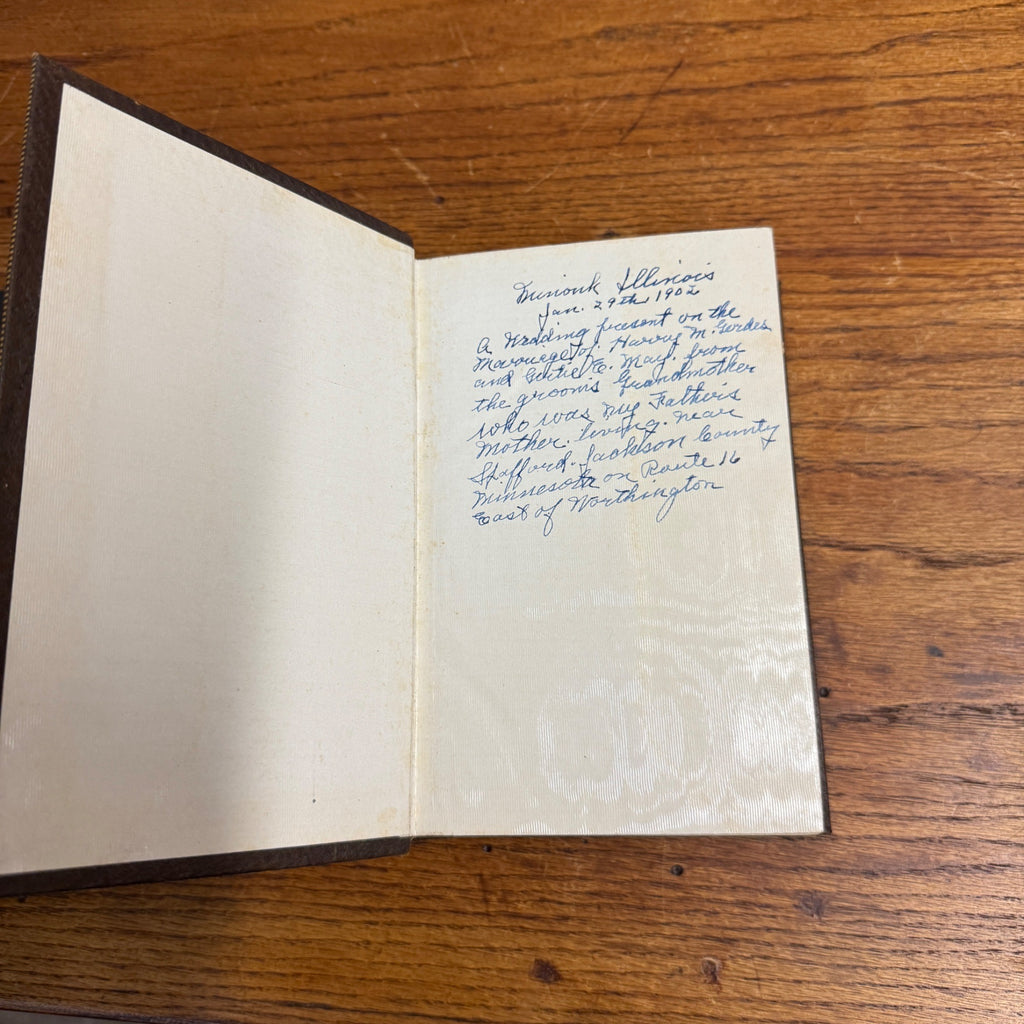 Minonk Illinois
Jan. 29th 1902
A Wedding present on the
Marourge of. Harry M. Gerdes
and E. May. from
the groom's Grandmother
who was My Father's
Mother. living. near
Spafford. Jackson County
Minnesota on Route 16
East of Worthington